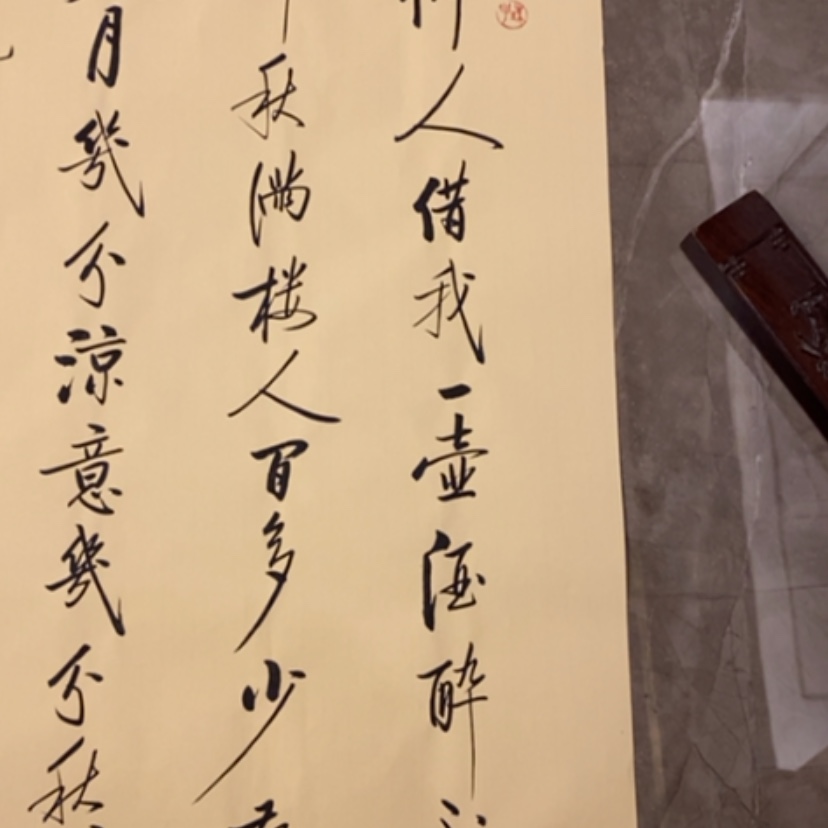 人借我一壶酒醉
秋满楼人间多少
月几分凉意几分秋